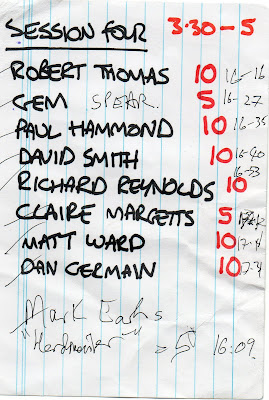 SESSION FOUR 3.30 - 5
ROBERT THOMAS 10 16-16
GEM SPEAR. 5 16-27
PAUL HAMMOND 10 16-35
DAVID SMITH 10 16-40
RICHARD REYNOLDS 10 16-53
CLAIRE MARGETTS 5
MATT WARD 10
DAN GERMAIN 10
Mark
5 16:09